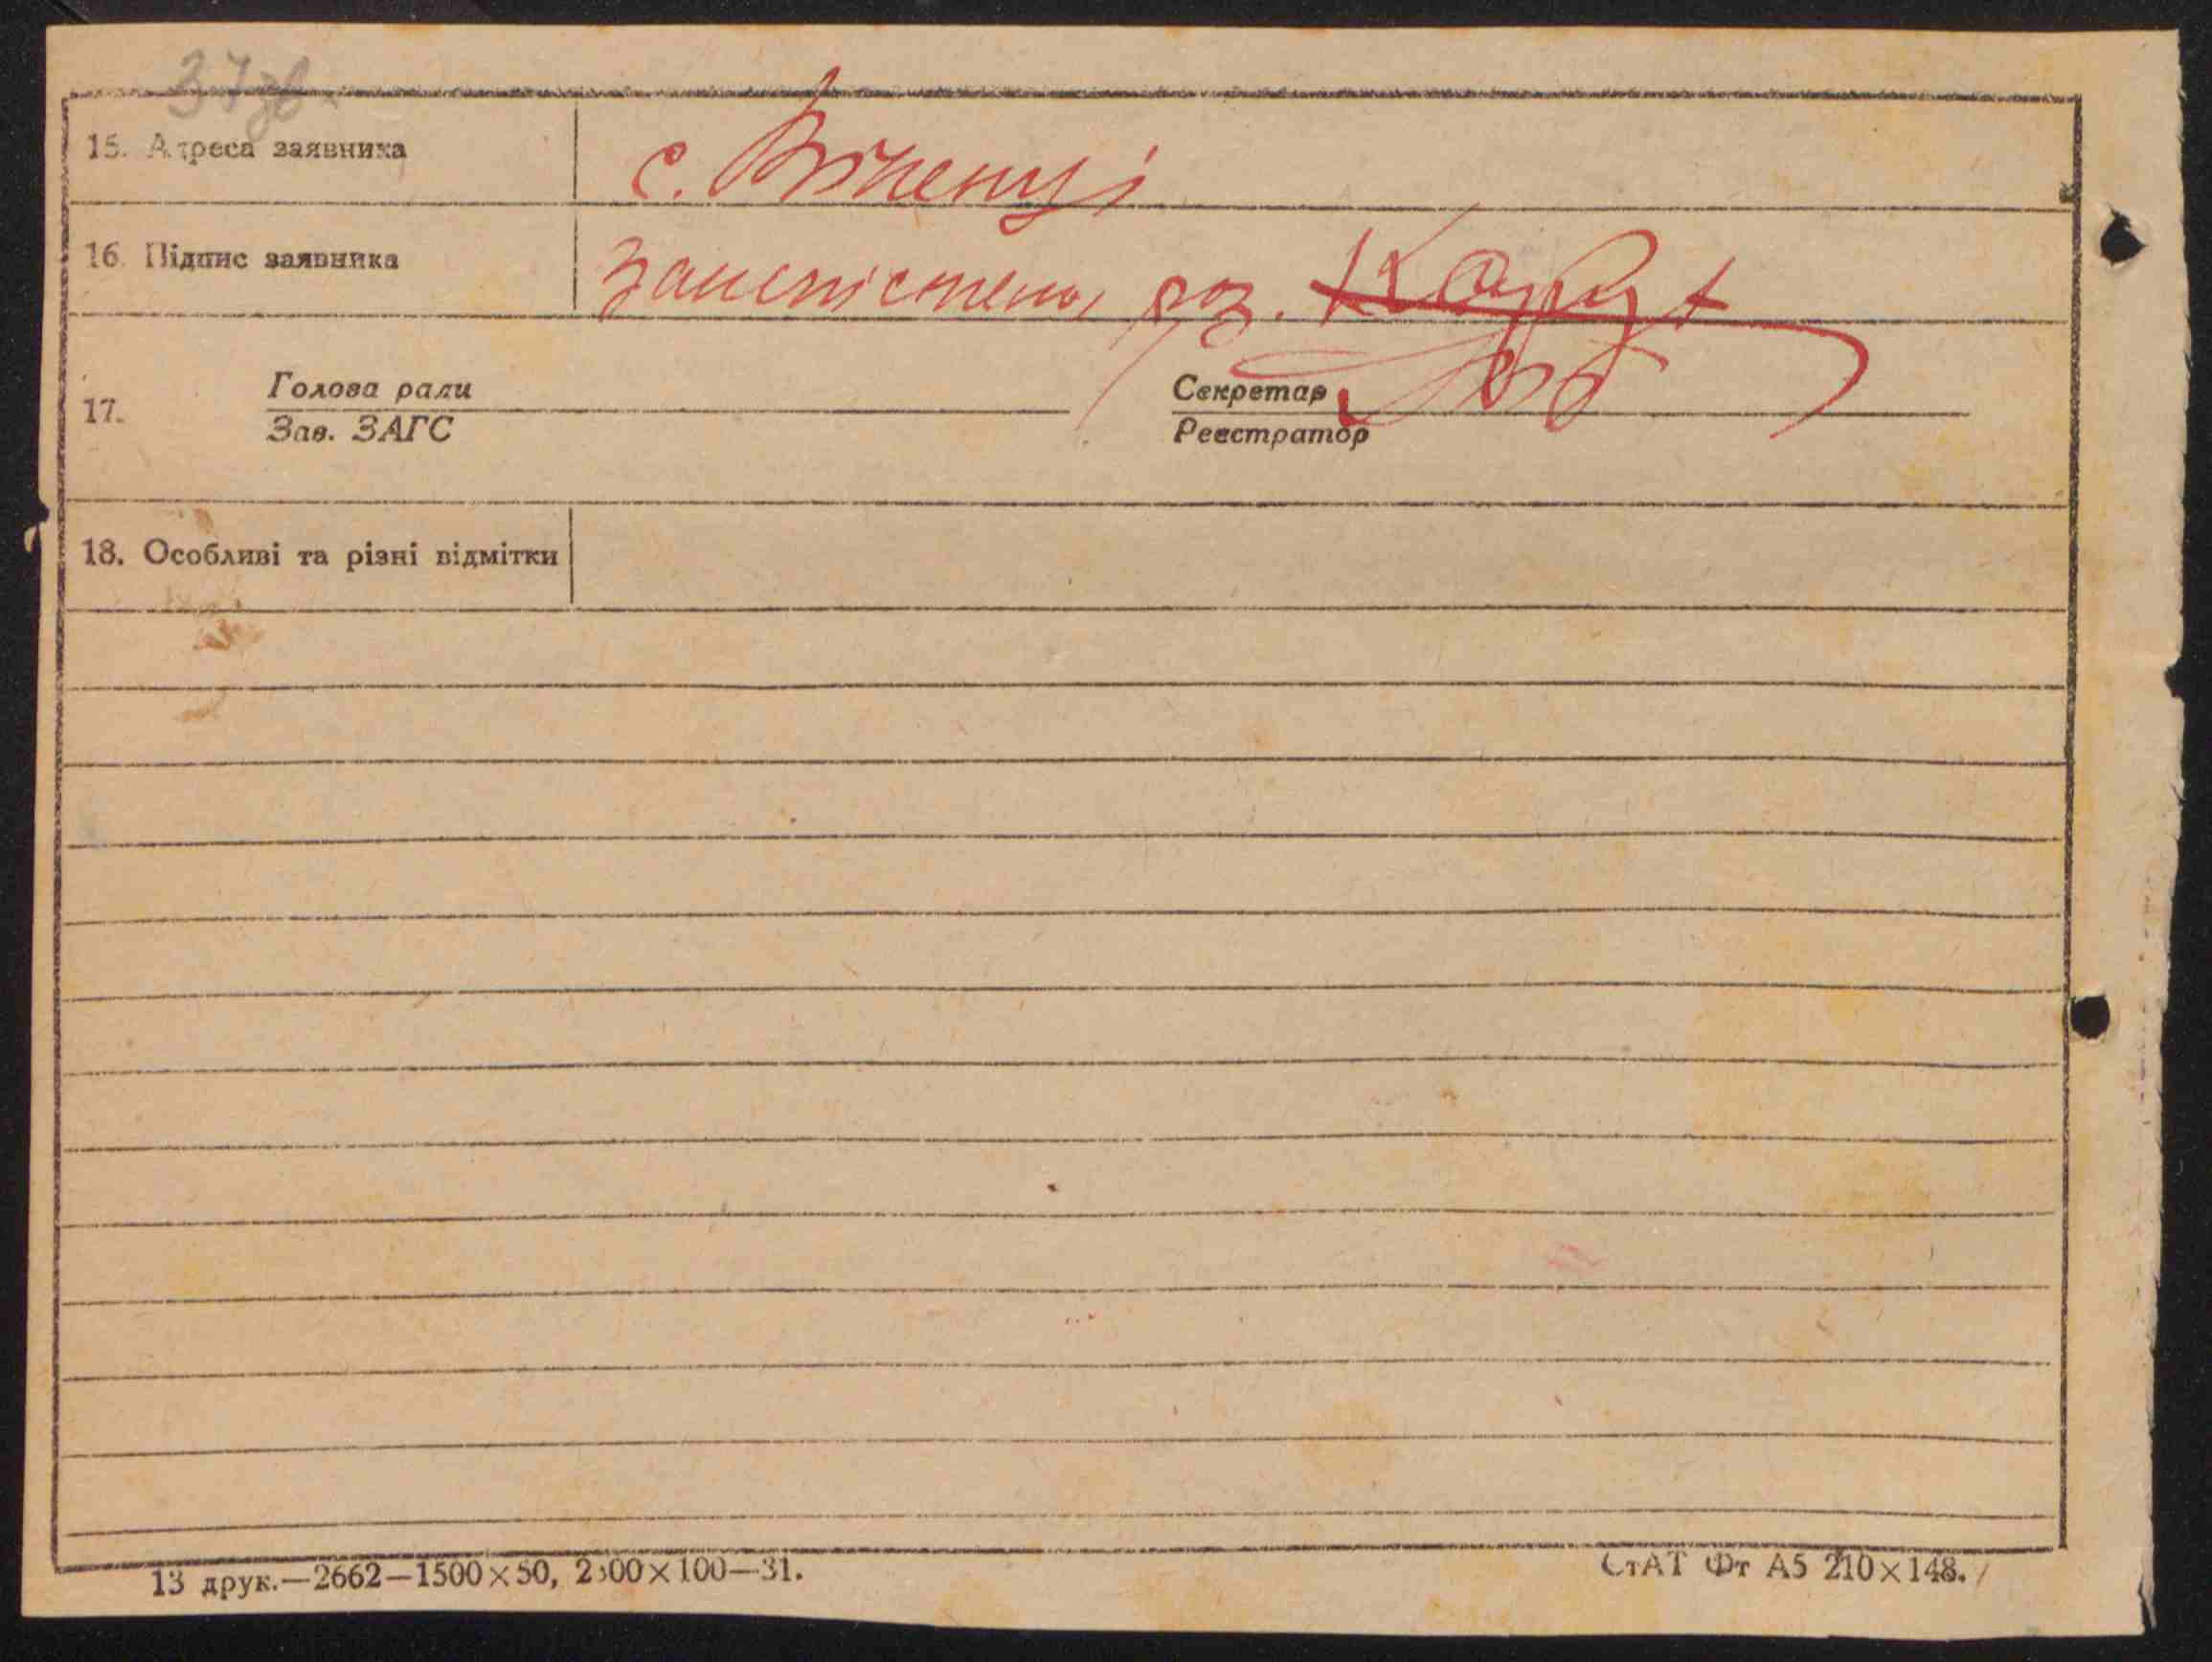 37зв
15. Адреса заявника с. Віненці
16. Підпис заявника за роз.
17. Голова ради Секретар
Зав. ЗАГС Реєстратор
18. Особливі та різні відмітки
13 друк.—2662—1500×50, 2500×100—31. СтАТ Фт А5 210×148.